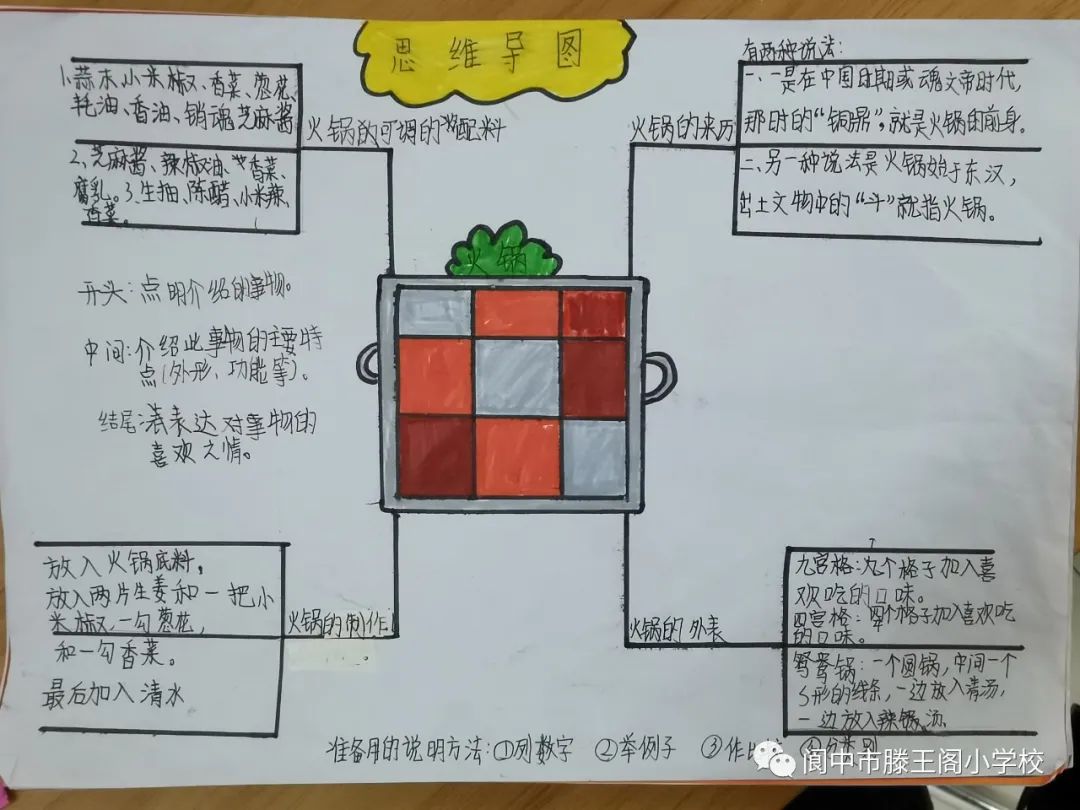 思维导图
1、蒜末、小米椒、香菜、葱花、
耗油、香油、销魂芝麻酱
2、芝麻酱、辣椒油、香菜、
腐乳。3、生抽、陈醋、小米辣、
香菜。
火锅的可调的配料
火锅的来历
有两种说法:
一、一是在中国时期或魂文帝时代,
那时的“铜鼎”,就是火锅的前身。
二、另一种说法是火锅始于东汉,
出土文物中的“斗”就指火锅。
火锅
开头:点明介绍的事物。
中间:介绍此事物的主要特
点(外形、功能等)。
结尾:表达对事物的
喜欢之情。
放入火锅底料,
放入两片生姜和一把小
米椒、一勾葱花,
和一勾香菜。
最后加入清水
火锅的制作
火锅的外表
九宫格:九个格子加入喜
欢吃的口味。
四宫格:四个格子加入喜欢吃
的口味。
鸳鸯锅:一个圆锅,中间一个
S形的线条,一边放入清汤,
一边放入辣锅汤
准备用的说明方法:①列数字 ②举例子 ③作比 ④分类别
阆中市滕王阁小学校